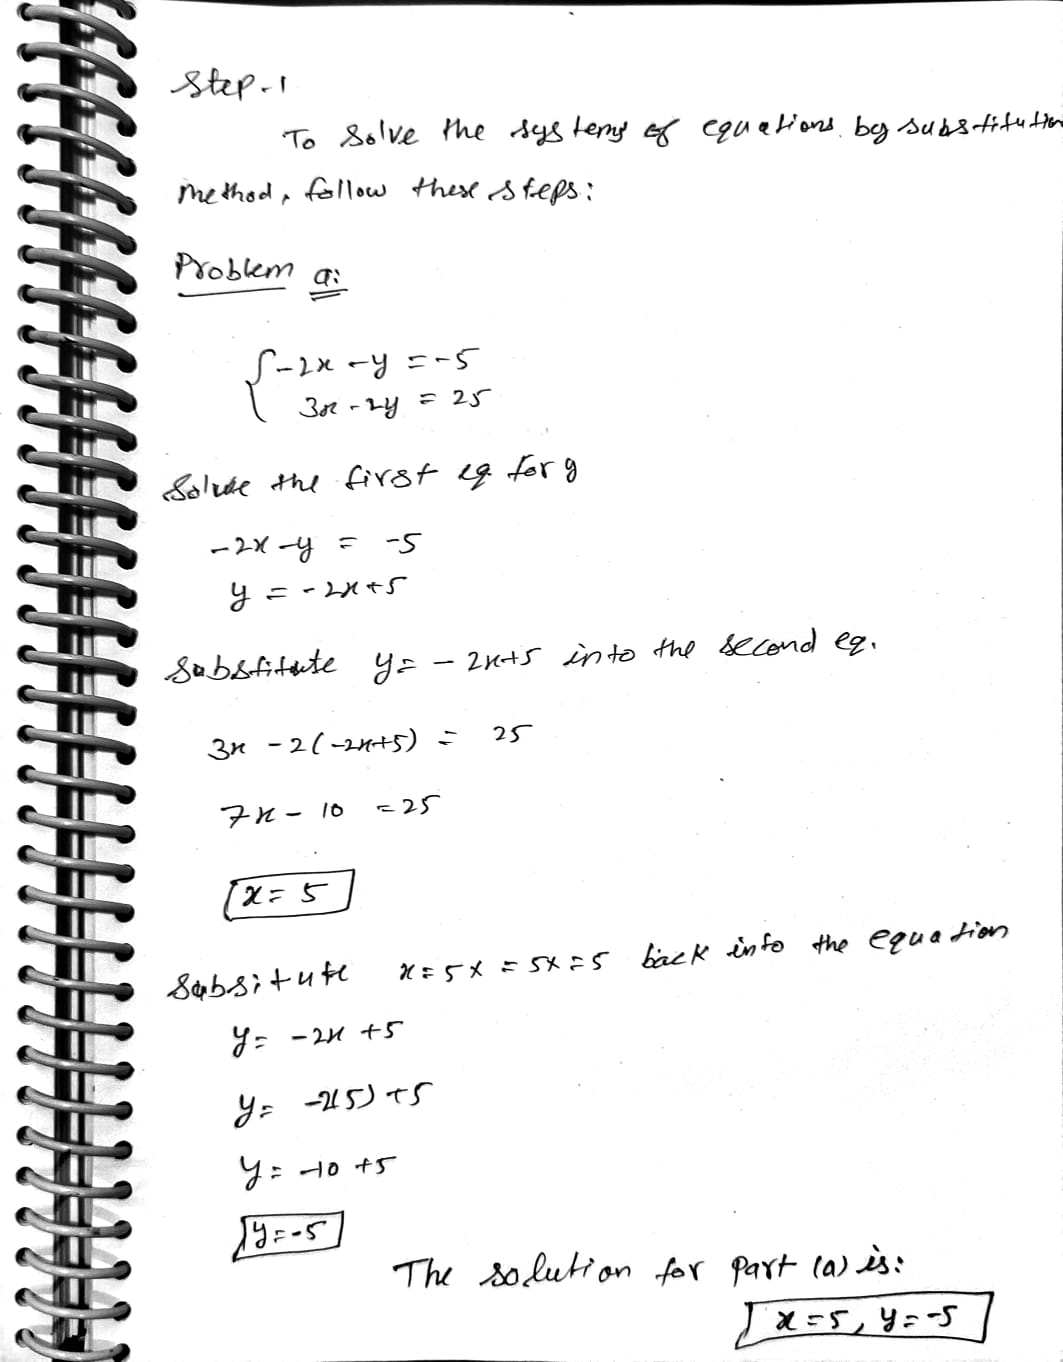 Step-1
To Solve the systems of equations by substitution
method, follow these steps:
Problem a:
{-2x - y = -5
3x - 2y = 25
Solve the first eq for y
-2x - y = -5
y = -2x+5
Substitute y = -2x+5 into the second eq.
3x - 2(-2x+5) = 25
7x - 10 = 25
x = 5
Subsitute x=5x=5x=5 back into the equation
y = -2x +5
y = -2(5)+5
y = -10 +5
y = -5
The solution for Part (a) is:
x = 5, y = -5